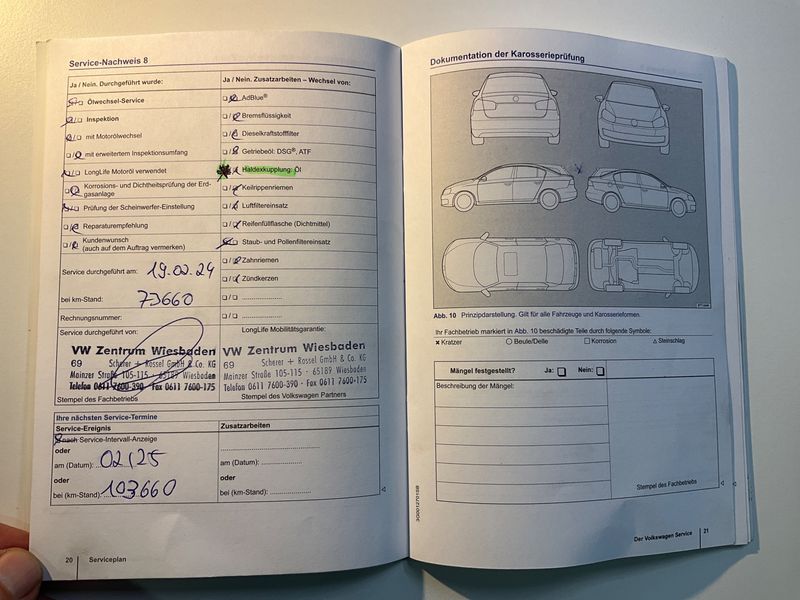 Service-Nachweis 8
Ja / Nein. Durchgeführt wurde:
Ja / Nein. Zusatzarbeiten – Wechsel von:
Ölwechsel-Service
AdBlue®
Inspektion
Bremsflüssigkeit
mit Motorölwechsel
Dieselkraftstofffilter
mit erweitertem Inspektionsumfang
Getriebeöl: DSG®, ATF
LongLife Motoröl verwendet
Haldexkupplung: Öl
Korrosions- und Dichtheitsprüfung der Erd-
gasanlage
Keilrippenriemen
Prüfung der Scheinwerfer-Einstellung
Luftfiltereinsatz
Reparaturempfehlung
Reifenfüllflasche (Dichtmittel)
Kundenwunsch
(auch auf dem Auftrag vermerken)
Staub- und Pollenfiltereinsatz
Zahnriemen
Zündkerzen
Service durchgeführt am: 19.02.24
bei km-Stand: 73660
Rechnungsnummer:
Service durchgeführt von:
LongLife Mobilitätsgarantie:
VW Zentrum Wiesbaden
69 Scherer + Rossel GmbH & Co. KG
Mainzer Straße 105-115 · 65189 Wiesbaden
Telefon 0611 7600-390 · Fax 0611 7600-175
Stempel des Fachbetriebs
VW Zentrum Wiesbaden
69 Scherer + Rossel GmbH & Co. KG
Mainzer Straße 105-115 · 65189 Wiesbaden
Telefon 0611 7600-390 · Fax 0611 7600-175
Stempel des Volkswagen Partners
Ihre nächsten Service-Termine
Service-Ereignis
Zusatzarbeiten
nach Service-Intervall-Anzeige
oder
am (Datum): 02/25
oder
bei (km-Stand): 103660
am (Datum):
oder
bei (km-Stand):
20 Serviceplan
Dokumentation der Karosserieprüfung
Abb. 10 Prinzipdarstellung. Gilt für alle Fahrzeuge und Karosserieformen.
Ihr Fachbetrieb markiert in Abb. 10 beschädigte Teile durch folgende Symbole:
× Kratzer ○ Beule/Delle □ Korrosion △ Steinschlag
Mängel festgestellt? Ja: Nein:
Beschreibung der Mängel:
Stempel des Fachbetriebs
3G0012701SB
Der Volkswagen Service 21